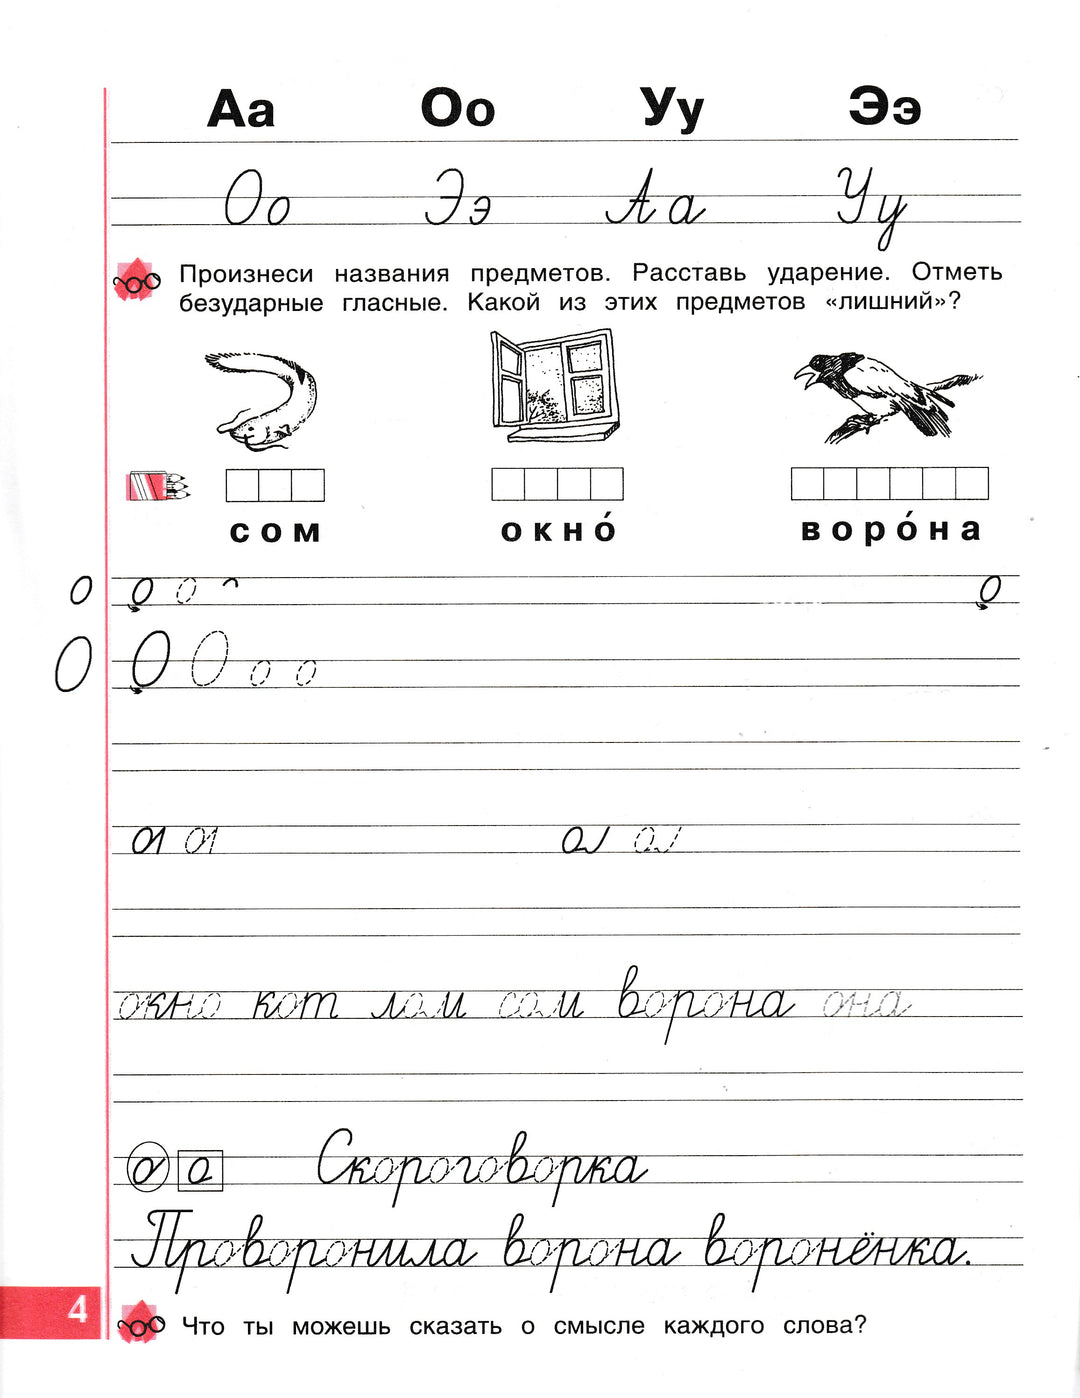 Аа Оо Уу Ээ
Оо Ээ Аа Уу
Произнеси названия предметов. Расставь ударение. Отметь
безударные гласные. Какой из этих предметов «лишний»?
сом окно́ воро́на
о о о о
О О О о о
окно кот лом сом ворона она
о о Скороговорка
Проворонила ворона воронёнка.
4 Что ты можешь сказать о смысле каждого слова?